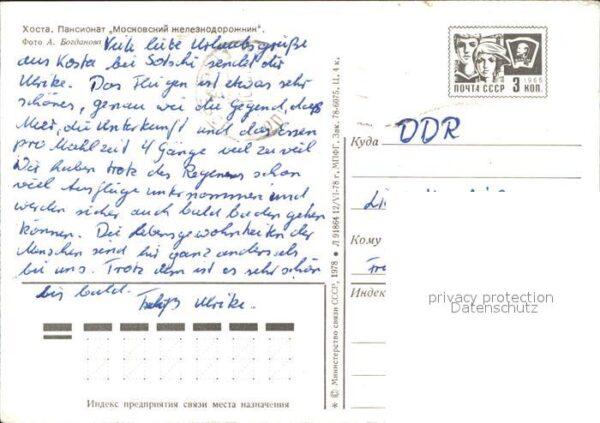 Хоста. Пансионат „Московский железнодорожник".
Фото А. Богданова
Viele liebe Urlaubsgrüße
aus Kosta bei Sotschi sendet dir
Ulrike. Das Fliegen ist etwas sehr
schönes, genau wie die Gegend, das
Meer, die Unterkunft und das Essen
pro Mahlzeit 4 Gänge viel zu viel
Wir haben trotz des Regens schon
viel Ausflüge unternommen und
werden sicher auch bald baden gehen
können. Die Lebensgewohnheiten der
Menschen sind hir ganz anders als
bei uns. Trotz dem ist es sehr schön
bis bald.
Ulrike.
Индекс предприятия связи места назначения
* © Министерство связи СССР, 1978 • Л 51864 12/VI-78 г. МПФГ. Зак. 78-6075. Ц. 4 к.
1966
ПОЧТА СССР 3 КОП.
Куда DDR
Кому
Индекс
privacy protection
Datenschutz